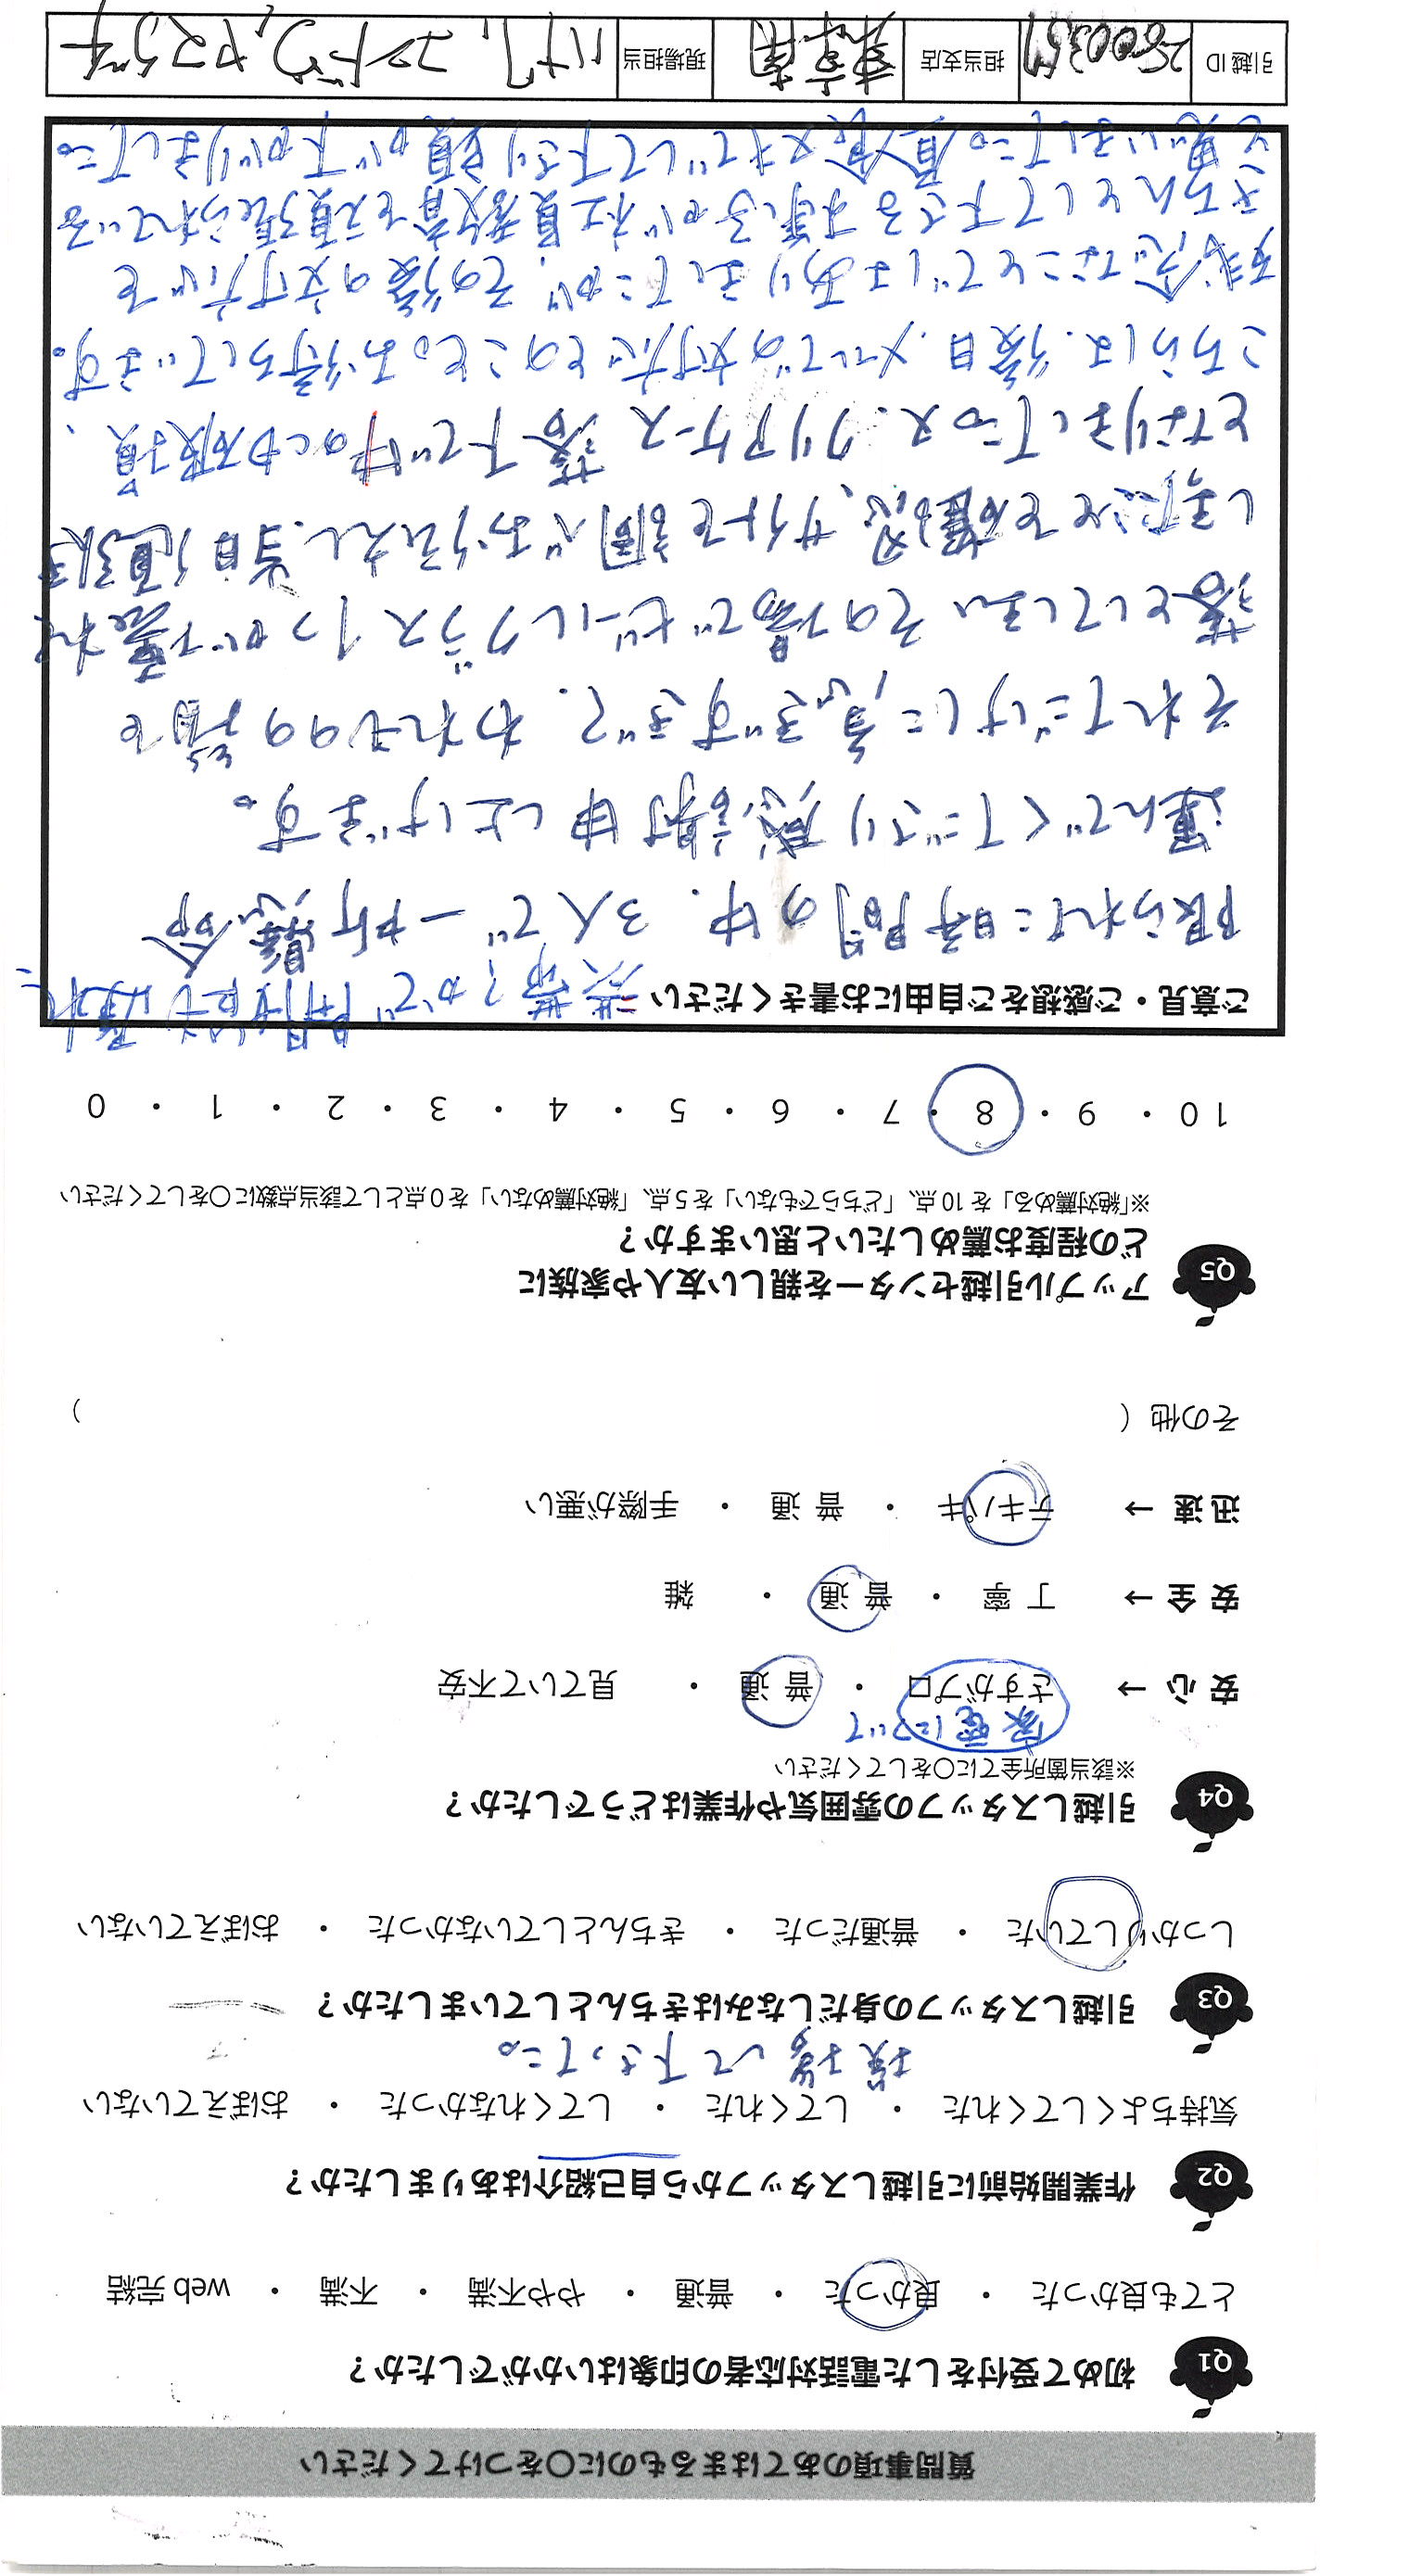 質問事項のあてはまるものに○をつけてください
Q1 初めて受付をした電話対応者の印象はいかがでしたか？
とても良かった ・ 良かった ・ 普通 ・ やや不満 ・ 不満 ・ web 完結
Q2 作業開始前に引越しスタッフから自己紹介はありましたか？
気持ちよくしてくれた ・ してくれた ・ してくれなかった ・ おぼえていない
挨拶して下さった。
Q3 引越しスタッフの身だしなみはきちんとしていましたか？
しっかりしていた ・ 普通だった ・ きちんとしていなかった ・ おぼえていない
Q4 引越しスタッフの雰囲気や作業はどうでしたか？
※該当箇所全てに○をしてください
家電について
安 心 → さすがプロ ・ 普 通 ・ 見ていて不安
安 全 → 丁 寧 ・ 普 通 ・ 雑
迅 速 → テキパキ ・ 普 通 ・ 手際が悪い
その他（ ）
Q5 アップル引越センターを親しい友人や家族に
どの程度お薦めしたいと思いますか？
※「絶対薦める」を 10 点、「どちらでもない」を 5 点、「絶対薦めない」を 0 点として該当点数に○をしてください
10 ・ 9 ・ 8 ・ 7 ・ 6 ・ 5 ・ 4 ・ 3 ・ 2 ・ 1 ・ 0
ご意見・ご感想をご自由にお書きください
限られた時間の中、3人で一所懸命
運んでくださり感謝申し上げます。
それだけに急ぎすぎて、われもの の箱を
落としてしまいその場でビールグラス1つが壊れ
てを確認、サイトを調べお伝えし、当日値引き
となりました。又、クリアケース 落下で中のにも破損、
こちらは、後日、メールでの対応とのこと。お待ちしています。
残念なことではありましたが、その後の対応で
きちんとして下さる様子が社員教育を頑張られている
と思いました。食べずでして下さり頭が下がりました。
引越 ID 担当支店 現場担当 ハナ、コンドウ、ヤスウチ